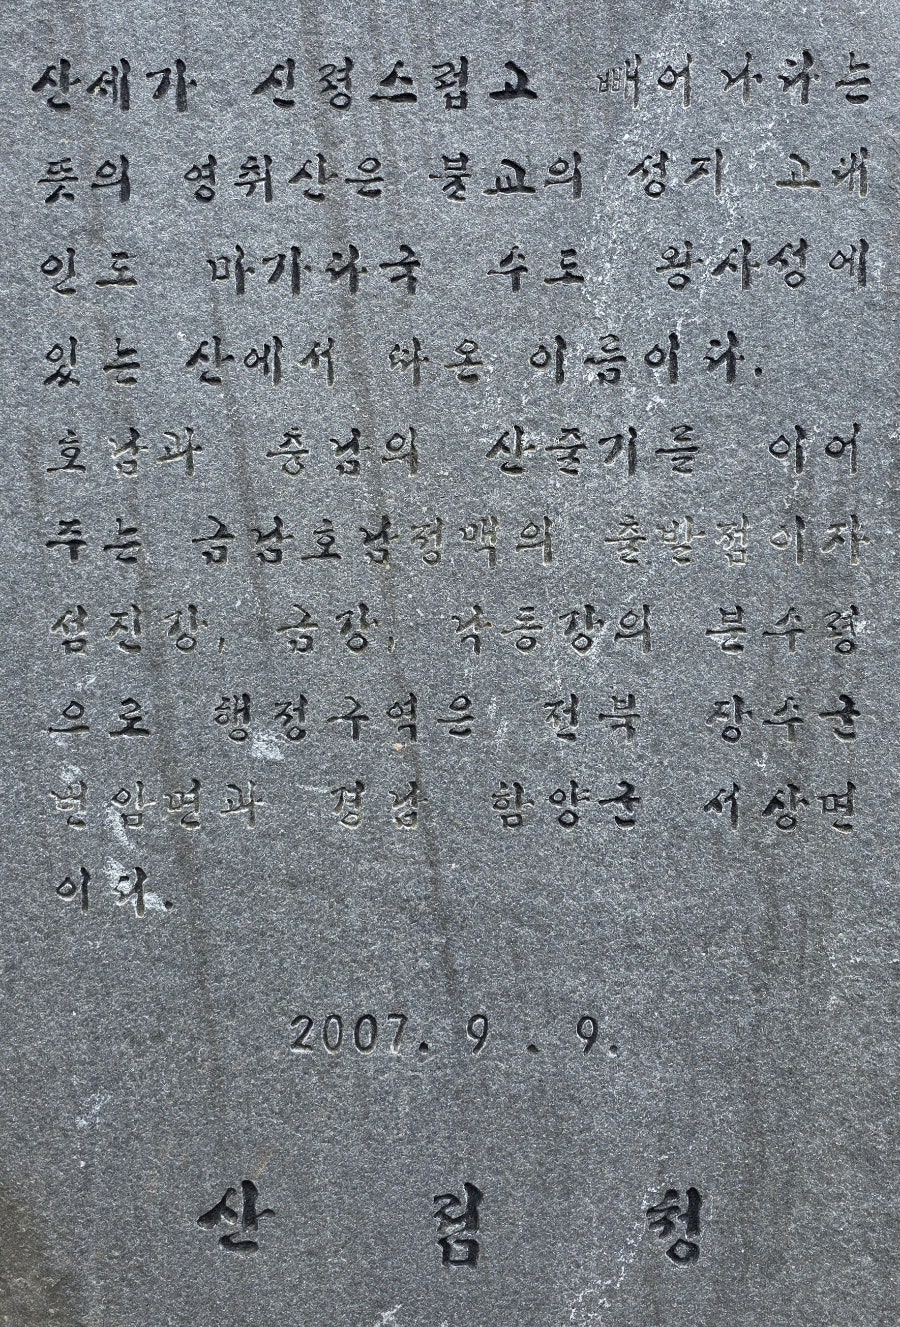 산세가 신령스럽고 빼어나다는
뜻의 영취산은 불교의 성지 고대
인도 마가다국 수도 왕사성에
있는 산에서 따온 이름이다.
호남과 충남의 산줄기를 이어
주는 금남호남정맥의 출발점이자
섬진강, 금강, 낙동강의 분수령
으로 행정구역은 전북 장수군
번암면과 경남 함양군 서상면
이다.
2007. 9 . 9.
산 림 청